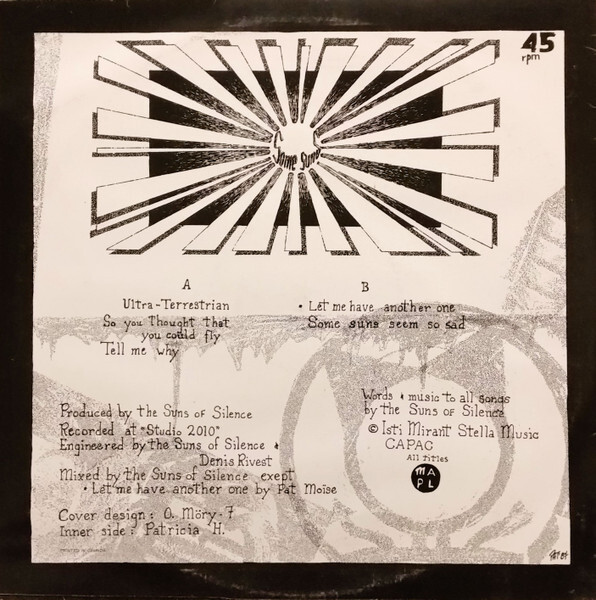 45
rpm
Some Suns
A
Ultra-Terrestrian
So you Thought that
you could fly
Tell me why
B
• Let me have another one
Some suns seem so sad
Produced by the Suns of Silence
Recorded at "Studio 2010"
Engineered by the Suns of Silence &
Denis Rivest
Mixed by the Suns of Silence exept
• Let me have another one by Pat Moïse
Cover design: O. Möry-7
Inner side: Patricia H.
PRINTED IN CANADA
Words & music to all songs
by the Suns of Silence
© Isti Mirant Stella Music
CAPAC
All Titles
MA
PL